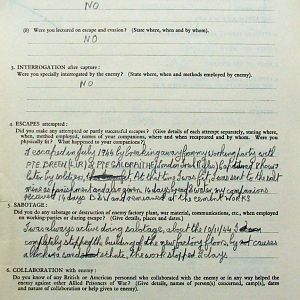 NO
(b) Were you lectured on escape and evasion? (State where, when and by whom).
NO
3. INTERROGATION after capture:
Were you specially interrogated by the enemy? (State where, when and methods employed by enemy).
NO
4. ESCAPES attempted:
Did you make any attempted or partly successful escapes? (Give details of each attempt separately, stating where,
when, method employed, names of your companions, where and when recaptured and by whom. Were you
physically fit? What happened to your companions?)
I escaped in July 1944 by breaking away from my working party with
PTE. BREEN (I.R.) & PTE GALBRAITH (London Scottish). Captured 8 hours
later by soldiers, fit. At this time I was fit, I was sent to the salt
mines as punishment and also given 14 days bread & water, my companions
received 14 days B & W and remained at the cement works
5. SABOTAGE:
Did you do any sabotage or destruction of enemy factory plant, war material, communications, etc., when employed
on working-parties or during escape? (Give details, places and dates.)
I was always active doing sabotage, about the 10/11/44 I
completely stopped the building of the new factory floors, by causes
a working sand, the work stopped 2 days
6. COLLABORATION with enemy:
Do you know of any British or American personnel who collaborated with the enemy or in any way helped the
enemy against other Allied Prisoners of War? (Give details, names of person(s) concerned, camp(s), dates
and nature of collaboration or help given to enemy).